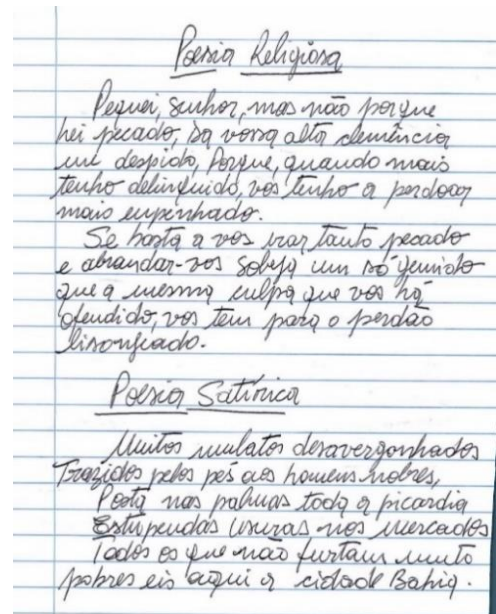 Poesia Religiosa
Pequei, Senhor, mas não porque
hei pecado, da vossa alta clemência
me despido, Porque, quando mais
tenho delinquido, vos tenho a perdoar
mais empenhado.
Se basta a vos irar tanto pecado
e abrandar-vos sobeja um só gemido
que a mesma culpa que vos há
ofendido, vos tem para o perdão
lisongeado.
Poesia Satírica
Muitos mulatos desavergonhados
Trazidos pelos pés aos homens nobres,
Posta nas palmas toda a picardia
Estupendas usuras nos mercados
Todos os que não furtam muito
pobres eis aqui a cidade Bahia.